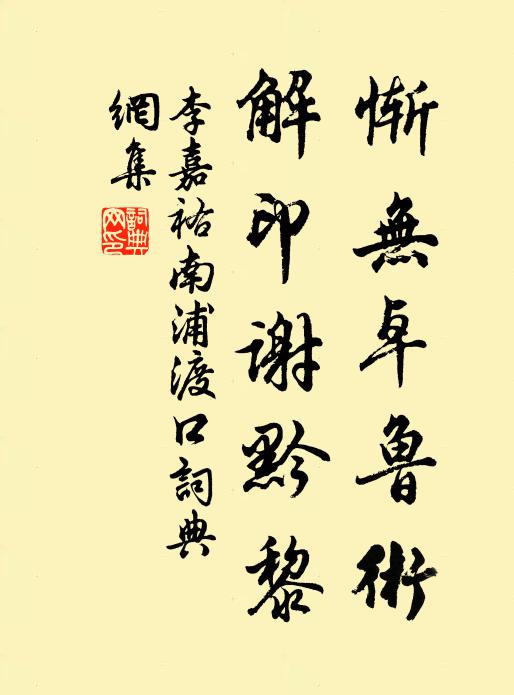 慚無卓魯術
解印謝黔黎
李嘉祐南浦渡口詞典
網集
詞典網印